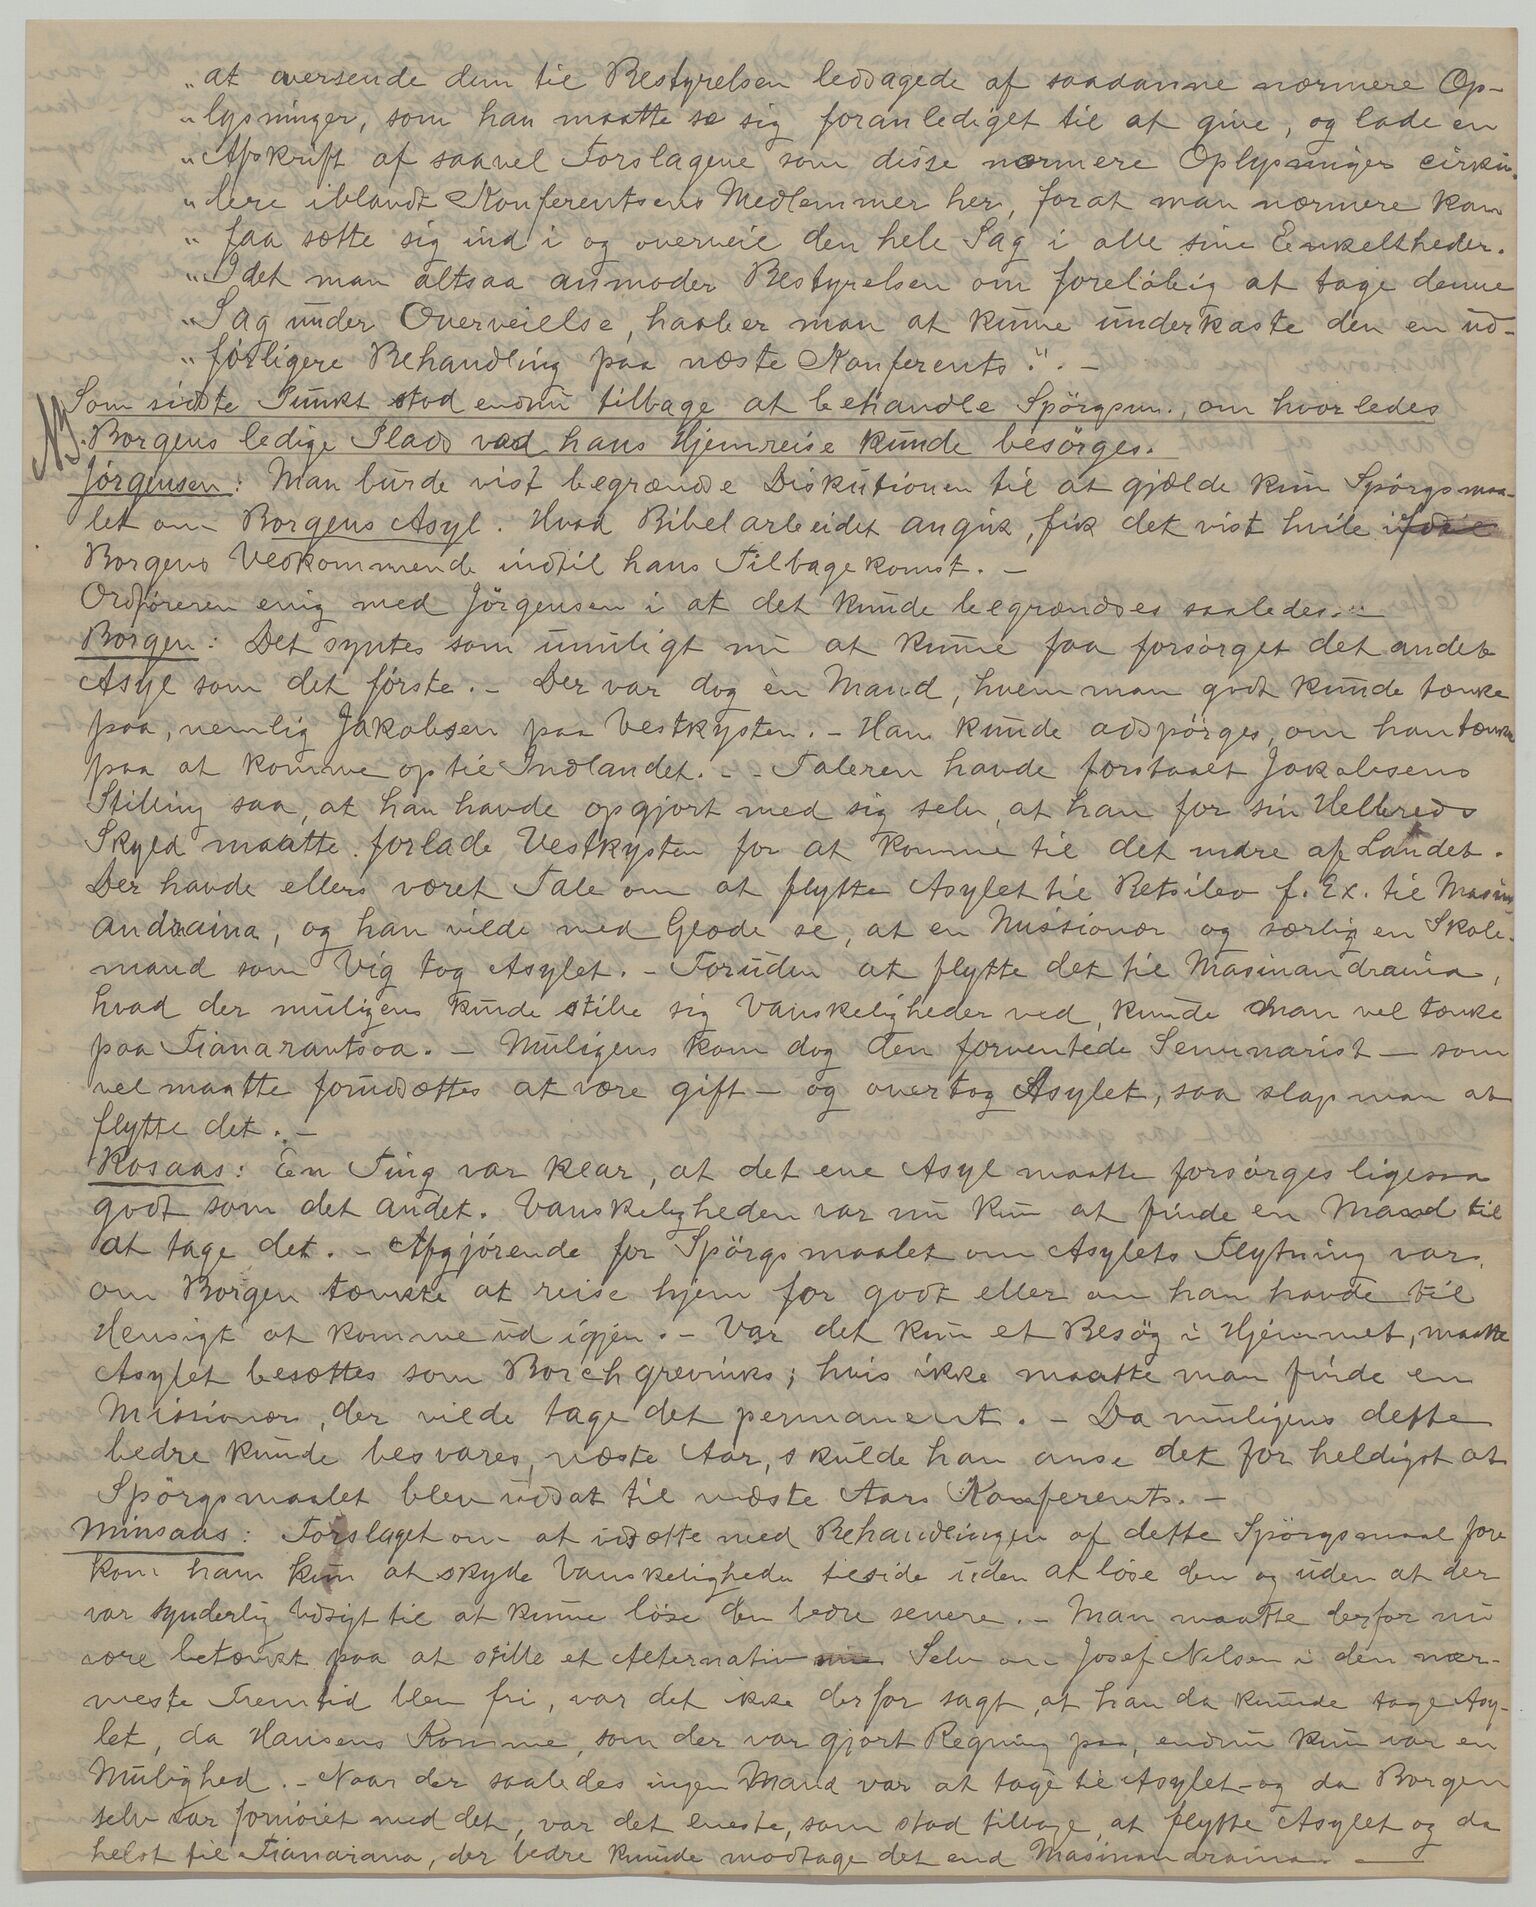 "at oversende dem til Bestyrelsen ledsagede af saadanne nærmere Op-
"lysninger, som han maatte se sig foranlediget til at give, og lade en
"Afskrift af saavel Forslagene som disse nærmere Oplysninger cirku-
"lere iblandt Konferentsens Medlemmer her, forat man nærmere kan
"faa sætte sig ind i og overveie den hele Sag i alle sine Enkeltheder.
"Idet man altsaa anmoder Bestyrelsen om foreløbig at tage denne
"Sag under Overveielse, haaber man at kunne underkaste den en ud-
"førligere Behandling paa næste Konferents." . -
Som sidste Punkt stod endnu tilbage at behandle Spörgsm., om hvorledes
Borgens ledige Plads ved hans Hjemreise kunde besörges.
Jörgensen: Man burde vist begrændse Diskutionen til at gjælde kun Spörgsmaa-
let om Borgens Asyl. Hvad Bibelarbeidet angik, fik det vist hvile
Borgens Vedkommende indtil hans Tilbagekomst. -
Ordföreren enig med Jörgensen i at det kunde begrændses saaledes. -
Borgen: Det syntes som umuligt nu at kunne faa forsørget det andet
Asyl som det første. - Der var dog èn Mand, hvem man godt kunde tænke
paa, nemlig Jakobsen paa Vestkysten. - Han kunde adspörges, om han tænkte
paa at komme op til Indlandet. - - Taleren havde forstaaet Jakobsens
Stilling saa, at han havde opgjort med sig selv, at han for sin Helbreds
Skyld maatte forlade Vestkysten for at komme til det indre af Landet.
Der havde ellers været Tale om at flytte Asylet til Betsileo f. Ex. til Masin-
andraina, og han vilde med Glæde se, at en Missionær og særlig en Skole-
mand som Vig tog Asylet. - Foruden at flytte det til Masinandraina,
hvad der muligens kunde stille sig Vanskeligheder ved, kunde man vel tænke
paa Fianarantsoa. - Muligens kom dog den forventede Seminarist - som
vel maatte forudsættes at være gift - og overtog Asylet, saa slap man at
flytte det. -
Rosaas: Èn Ting var klar, at det ene Asyl maatte forsørges ligesaa
godt som det andet. Vanskeligheden var nu kun at finde en Mand til
at tage det. - Afgjørende for Spörgsmaalet om Asylets Flytning var,
om Borgen tænkte at reise hjem for godt eller om han havde til
Hensigt at komme ud igjen. - Var det kun et Besög i Hjemmet, maatte
Asylet besættes som Borchgrevinks; hvis ikke maatte man finde en
Missionær, der vilde tage det permanent. - Da muligens dette
bedre kunde besvares, næste Aar, skulde han anse det for heldigst at
Spörgsmaalet blev udsat til næste Aars Konferents. -
Minsaas: Forslaget om at udsætte med Behandlingen af dette Spörgsmaal fore
kom ham kun at skyde Vanskeligheden tilside uden at løse den og uden at der
var synderlig Udsigt til at kunne löse den bedre senere. - Man maatte derfor nu
være betænkt paa at stille et Alternativ Selv om Josef Nilsen i den nær-
meste Fremtid blev fri, var det ikke derfor sagt, at han da kunde tage Asy-
let, da Hansens Komme, som der var gjort Regning paa, endnu kun var en
Mulighed. - Naar der saaledes ingen Mand var at tage til Asylet - og da Borgen
selv var fornöiet med det, var det eneste, som stod tilbage, at flytte Asylet og da
helst til Fianarana, der bedre kunde modtage det end Masinandraina. -